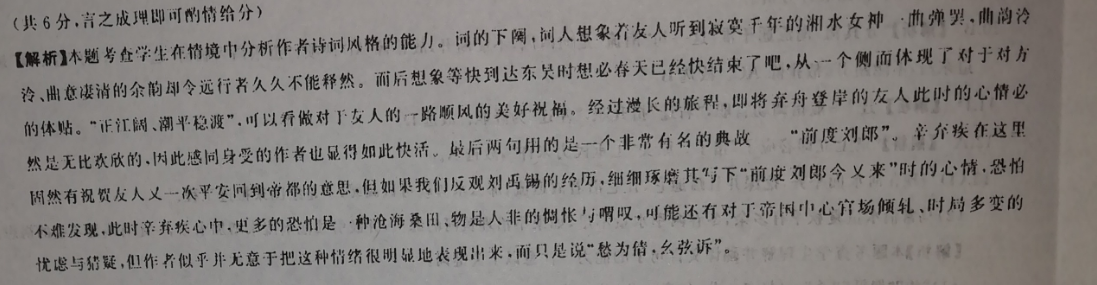 (共6分,言之成理即可酌情给分)
【解析】本题考查学生在情境中分析作者诗词风格的能力。词的下阕,词人想象着友人听到寂寞千年的湘水女神一曲弹罢,曲韵泠
泠、曲意凄清的余韵却令远行者久久不能释然。而后想象等快到达东吴时想必春天已经快结束了吧,从一个侧面体现了对于对方
的体贴。“正江阔、潮平稳渡”,可以看做对于友人的一路顺风的美好祝福。经过漫长的旅程,即将弃舟登岸的友人此时的心情必
然是无比欢欣的,因此感同身受的作者也显得如此快活。最后两句用的是一个非常有名的典故——“前度刘郎”。辛弃疾在这里
固然有祝贺友人又一次平安回到帝都的意思,但如果我们反观刘禹锡的经历,细细琢磨其写下“前度刘郎今又来”时的心情,恐怕
不难发现,此时辛弃疾心中,更多的恐怕是一种沧海桑田、物是人非的惆怅与喟叹,可能还有对于帝国中心官场倾轧、时局多变的
忧虑与猜疑,但作者似乎并无意于把这种情绪很明显地表现出来,而只是说“愁为倩,幺弦诉”。